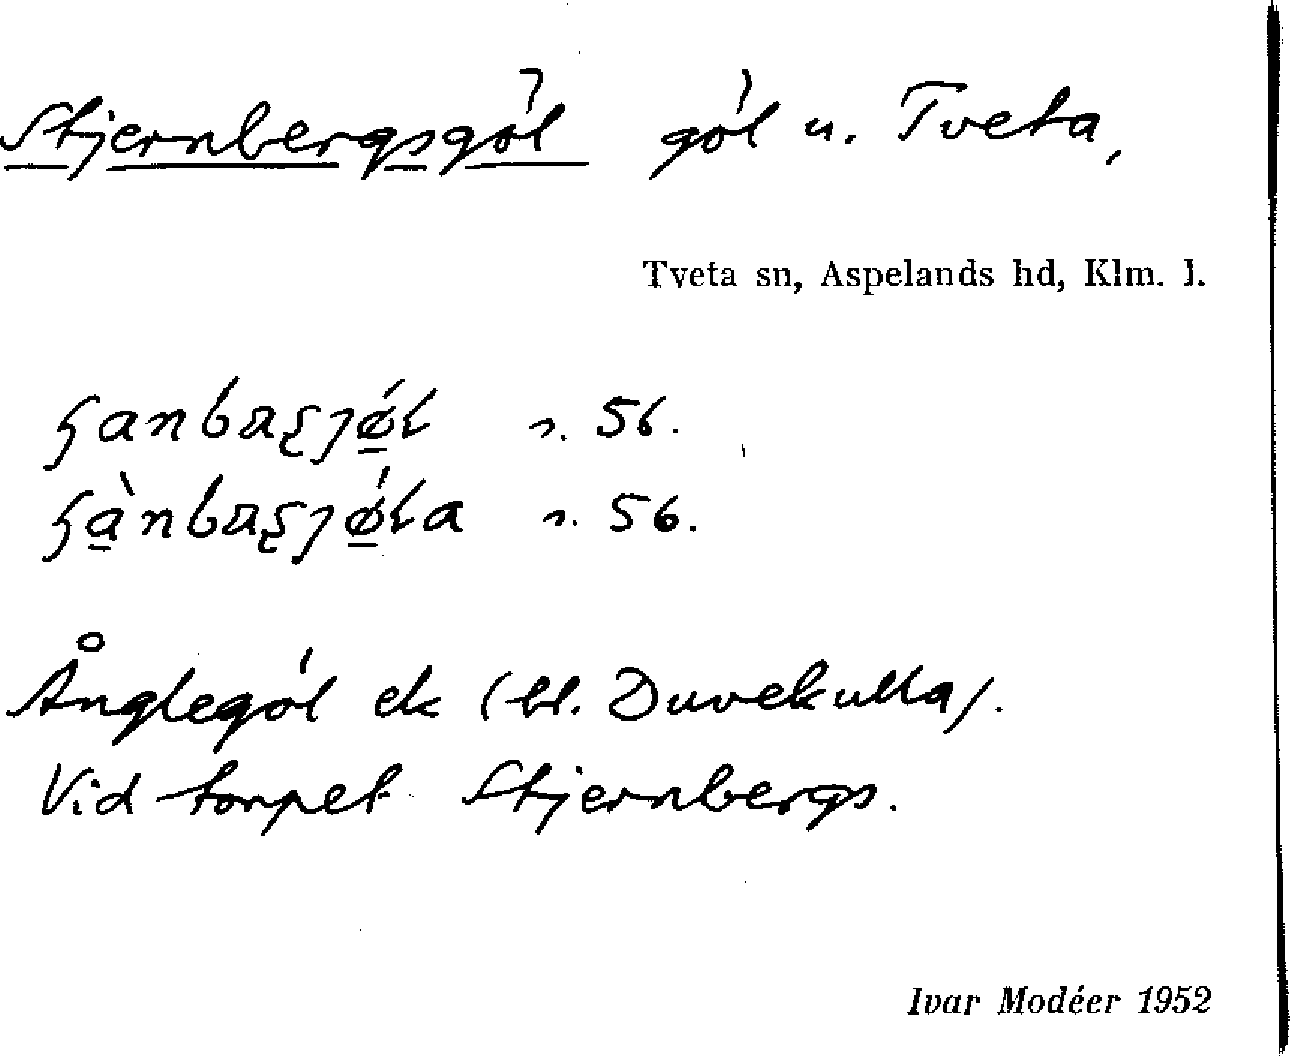 Stjernbergsgöl göl u. Tveta,
Tveta sn, Aspelands hd, Klm. l.
s. 56.
s. 56.
Ånglegöl ek (bl. Duvekulla).
Vid torpet Stjernbergs.
Ivar Modéer 1952